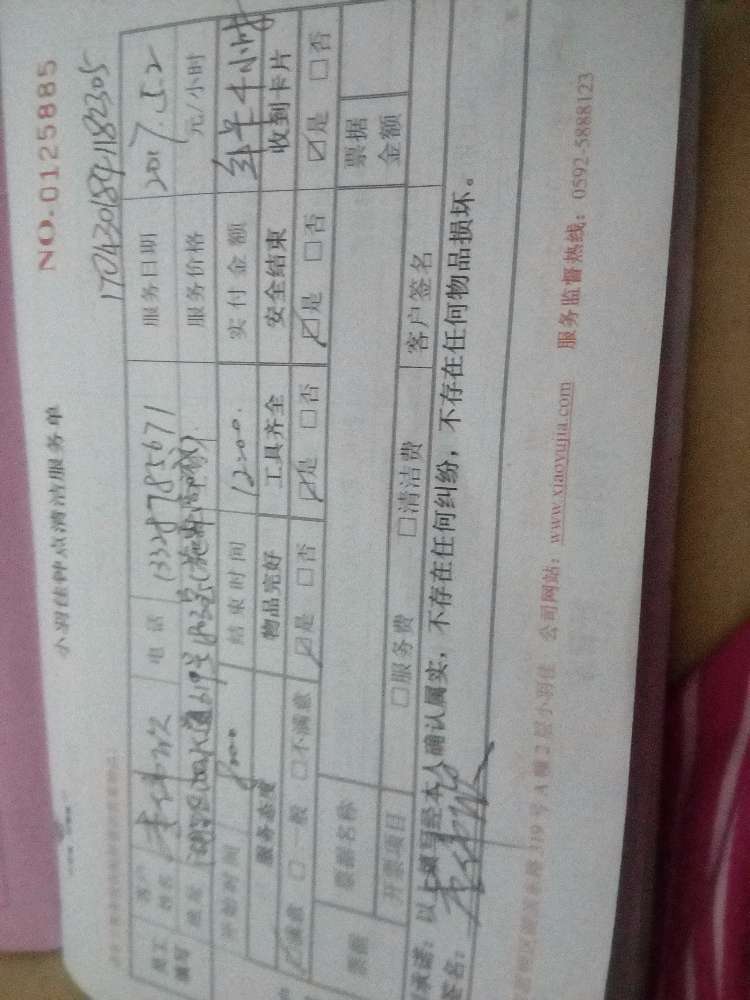 NO.0125885
小羽佳钟点清洁服务单
1704301841182305
员工填写 客户姓名 电话 13328785671 服务日期 2017.5.2
地址 服务价格 元/小时
开始时间 8:00 结束时间 12:00. 实付金额 包年4小时
服务态度 物品完好 工具齐全 安全结束 收到卡片
☑满意 □一般 □不满意 ☑是 □否 ☑是 □否 ☑是 □否 ☑是 □否
票据 票据名称 票据金额
开票项目 □服务费 □清洁费 客户签名
承诺：以上填写经本人确认属实，不存在任何纠纷，不存在任何物品损坏。
签名：
319号A幢2层小羽佳 公司网站：www.xiaoyujia.com 服务监督热线：0592-5888123